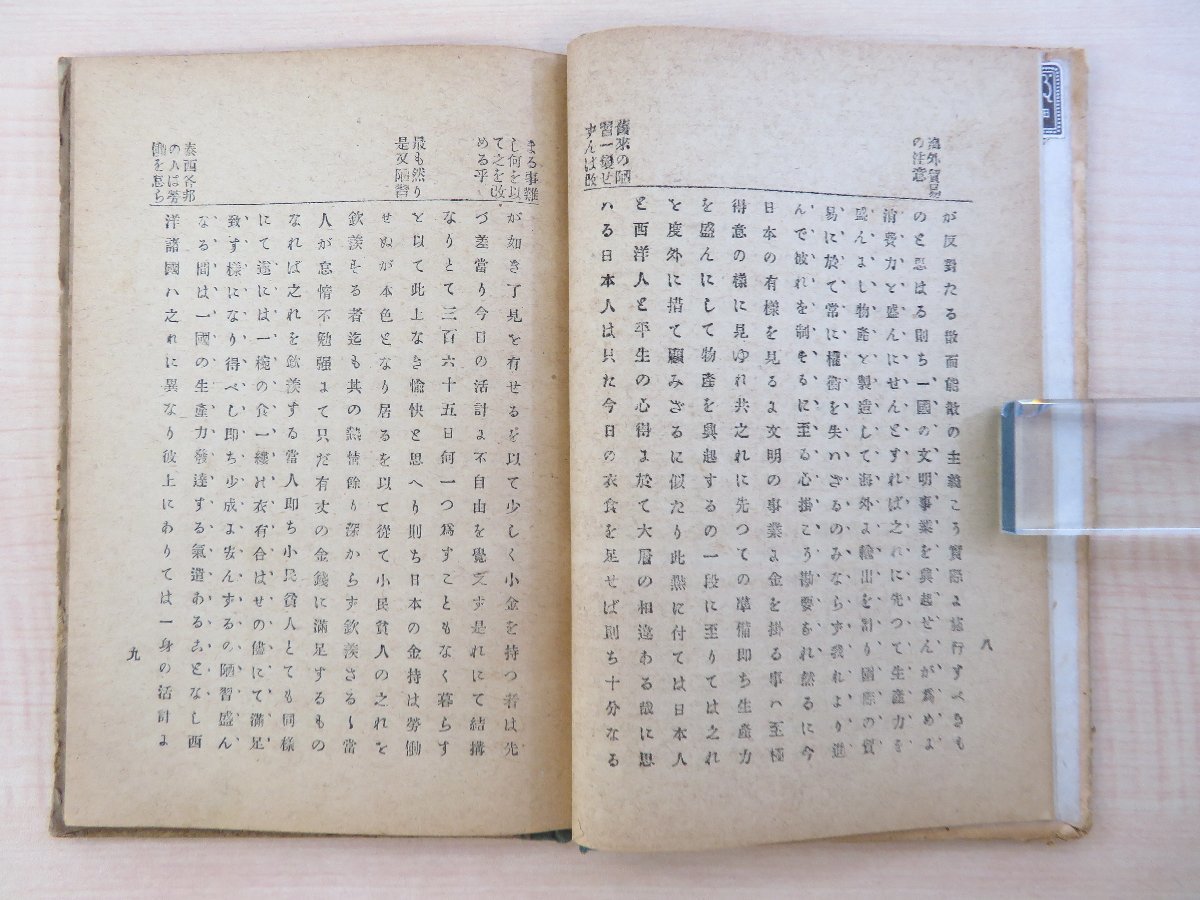 海外貿易
の注意
舊來の陋
習一變せ
ずんば改
が反對たる散而能散の主義こう實際よ施行すべきも
のと思はる則ち一國の文明事業を興起せんが爲めよ
消費力を盛んにせんとすれば之れに先つて生產力を
盛んよし物產を製造して海外よ輸出を計り國際の貿
易に於て常に權衡を失ハざるのみならず我れより進
んで彼れを制をるに至る心掛こう勘要なれ然るに今
日本の有樣を見るよ文明の事業よ金を掛る事ハ至極
得意の樣に見ゆれ共之れに先つての準備即ち生產力
を盛んにして物產を興起するの一段に至りては之れ
を度外に措て顧みざるに似たり此點に付ては日本人
と西洋人と平生の心得よ於て大層の相違ある哉に思
ハる日本人は只た今日の衣食を足せば則ち十分なる
八
まる事難
し何を以
て之を改
める乎
最も然り
是又陋習
泰西各邦
の人は勞
働を怠ら
が如き了見を有せるを以て少しく小金を持つ者は先
づ差當り今日の活計よ不自由を覺へず是れにて結搆
なりとて三百六十五日何一つ爲すこともなく暮らす
を以て此上なき愉快と思へり則ち日本の金持は勞働
せぬが本色となり居るを以て從て小民貧人の之れを
欽羨をる者迄も其の熱情餘り深からず欽羨さるゝ當
人が怠惰不勉强よて只だ有丈の金錢に滿足するもの
なれば之れを欽羨する當人即ち小民貧人とても同樣
にて遂には一椀の食一縷の衣有合はせの儘にて滿足
致す樣になり得べし即ち少成よ安んするの陋習盛ん
なる間は一國の生產力發達する氣遣あるとなし西
洋諸國ハ之れに異なり彼上にありては一身の活計よ
九